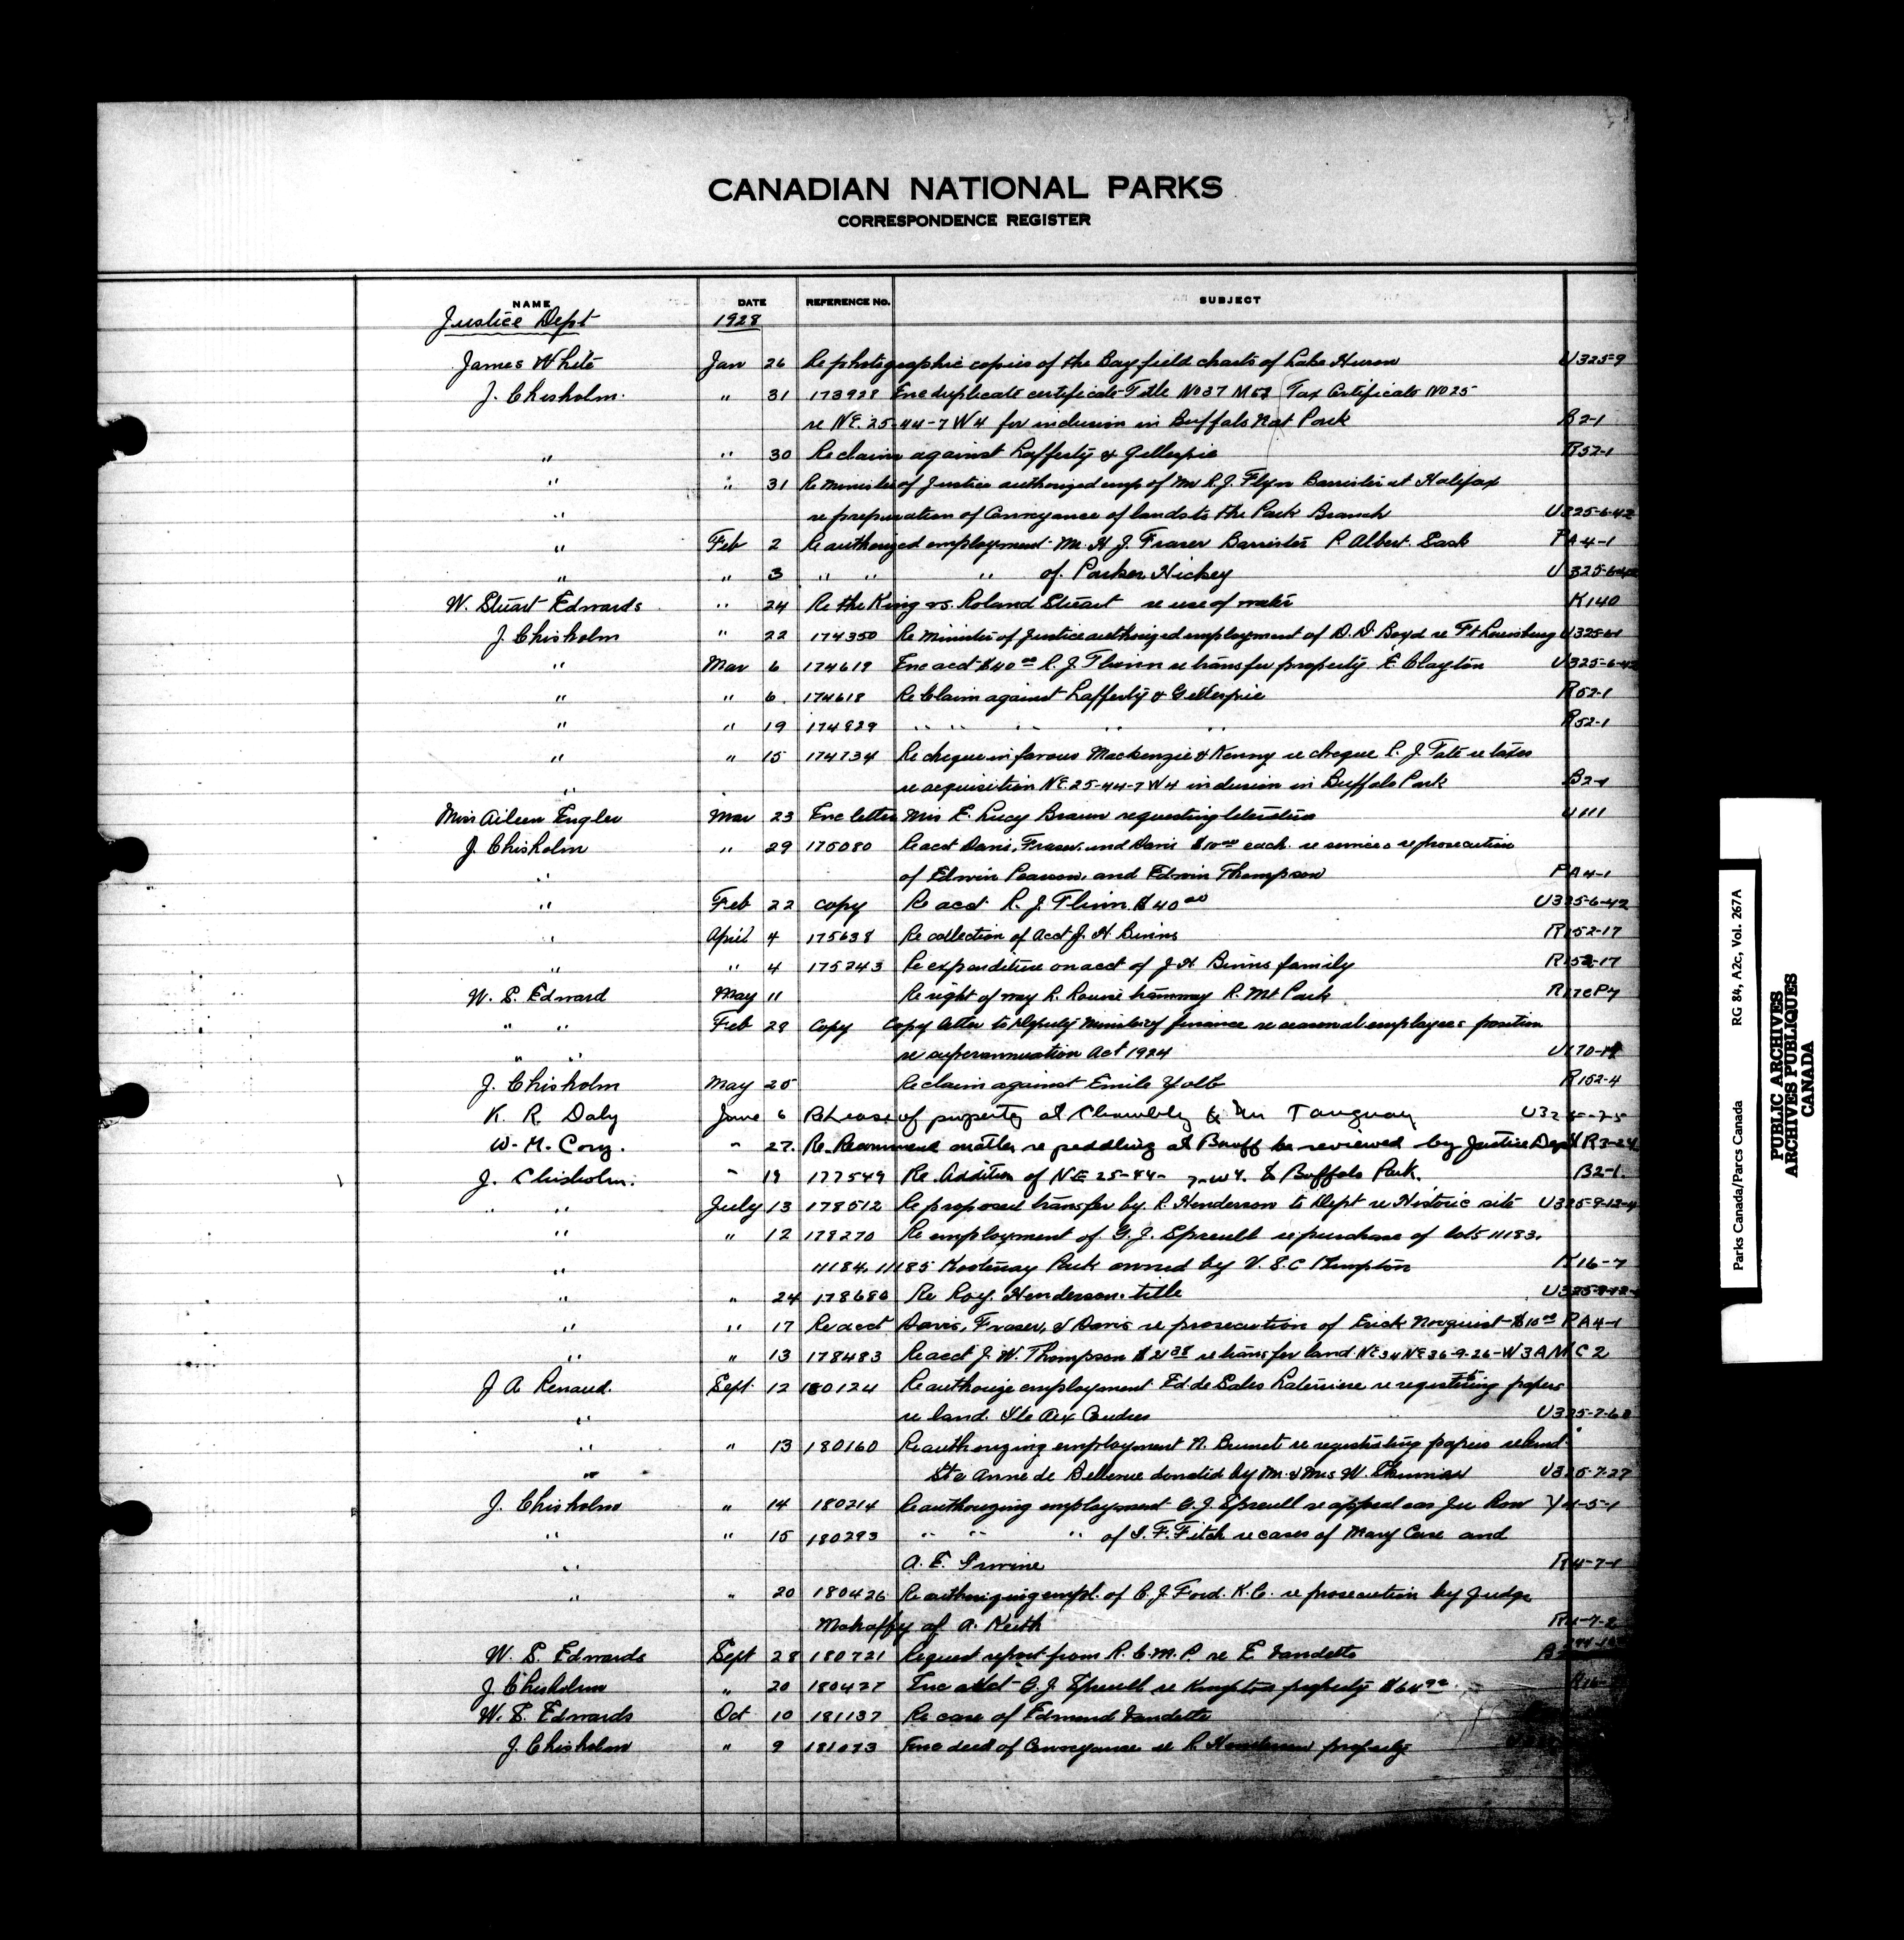 CANADIAN NATIONAL PARKS
CORRESPONDENCE REGISTER
NAME DATE REFERENCE NO. SUBJECT
Justice Dept 1928
James White Jan 26 Re photographic copies of the Bayfield charts of Lake Huron U325-9
J. Chisholm. " 31 173928 Enc duplicate certificate Title No 37 M52 Tax Certificate No 25
re NE. 25-44-7 W4 for inclusion in Buffalo Nat Park B2-1
" " 30 Re claim against Lafferty & Gillespie R52-1
" " 31 Re Minister of Justice authorized emp of Mr R.J. Flynn Barrister at Halifax
" re preparation of Conveyance of lands to the Park Branch U325-6-42
" Feb 2 Re authorized employment Mr. H J. Fraser Barrister P. Albert. Sask PA4-1
" " 3 " " " of. Parker Hickey U325-6-
W. Stuart Edwards " 24 Re the King vs. Roland Stuart re use of water K140
J. Chisholm " 22 174350 Re Minister of Justice authorized employment of D. D. Boyd re Ft Louisburg U325-6-1
" Mar 6 174619 Enc acct $40 00 R. J. Flinn re transfer property E. Clayton U325-6-42
" " 6. 174618 Re Claim against Lafferty & Gillespie R52-1
" " 19 174829 " " " " " R52-1
" " 15 174734 Re cheque in favour Mackenzie & Kenny re cheque R. J. Tate re taxes
" re acquisition NE. 25-44-7 W4 inclusion in Buffalo Park B2-1
Miss Aileen Engler Mar 23 Enc letter Mis E. Lucy Braun requesting literature U111
J. Chisholm " 29 175080 Re acct Davis, Fraser, and Davis $10 00 each re services re prosecution
" of Edwin Pearson, and Edwin Thompson PA4-1
" Feb 22 copy Re acct R. J. Flinn $40 00 U325-6-42
" April 4 175638 Re collection of Acct J. H. Binns R152-17
" " 4 175243 Re expenditure on acct of J H Binns family R152-17
W. S. Edward May 11 Re right of way L. Louise tramway R. Mt Park R17CP7
" " Feb 28 Copy Copy letter to Deputy Minister of finance re seasonal employees position
" " re superannuation Act 1924 U170-14
J. Chisholm May 25 Re claim against Emile Yolt R152-4
K. R. Daly June 6 Re Lease of property at Chambly to Mr Tanguay U325-7-5
W. M. Cory. " 27. Re. Recommend matter re peddling at Banff be reviewed by Justice Dept R3-24
J. Chisholm. " 19 177549 Re Addition of NE 25-44- 7-W4. to Buffalo Park. B2-1.
" " July 13 178512 Re proposed transfer by R. Henderson to Dept re Historic site U325-9-12-
" " 12 178270 Re employment of G. J. Spreull re purchase of lots 11183,
" 11184, 11185 Kootenay Park owned by V. S. C Kimpton K16-7
" " 24 178680 Re Roy. Henderson. title U325-9-12-
" " 17 Re acct Davis, Fraser, & Davis re prosecution of Erick Norquist $10 00 PA4-1
" " 13 178483 Re acct J. W. Thompson re transfer land NE34 NE36-9-26-W3 AMC2
J A Renaud. Sept. 12 180124 Re authorize employment Ed de Sales Laterriere re registering papers
" re land. Ile Aux Coudres U325-7-6
" " 13 180160 Re authorizing employment N. Brunet re registering papers re land
" Ste Anne de Bellevue donated by M. & Mrs W. U325-7-27
J. Chisholm " 14 180214 Re authorizing employment G. J. Spreull re appeal case Jue Row Y4-5-1
" " 15 180293 " " " of S. F. Fitch re cases of Mary Cave and
" A. E. Irwine R4-7-1
" " 20 180426 Re authorizing empl. of C. J. Ford. K. C. re prosecution by Judge
Mahaffy of A. Keith R4-7-2
W. S. Edwards Sept 28 180721 Request report from R. C. M. P. re E Vandette
J. Chisholm " 20 180427 Enc acct G. J. Spreull re Kimpton property
W. S. Edwards Oct 10 181137 Re case of Edmond Vandette
J. Chisholm " 9 181073 Enc deed of Conveyance re R. Henderson property
Parks Canada/Parcs Canada RG 84, A2c, Vol. 267A
PUBLIC ARCHIVES
ARCHIVES PUBLIQUES
CANADA